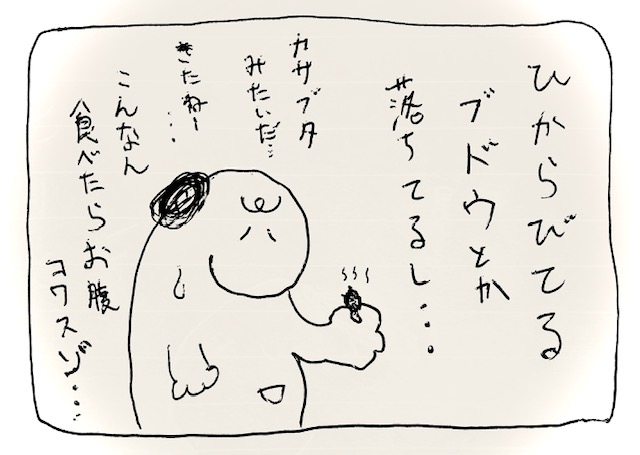 ひからびてる
ブドウとか
落ちてるし・・・
カサブタ
みたいだ…
きたねー…
こんなん
食べたらお腹
コワスゾ…